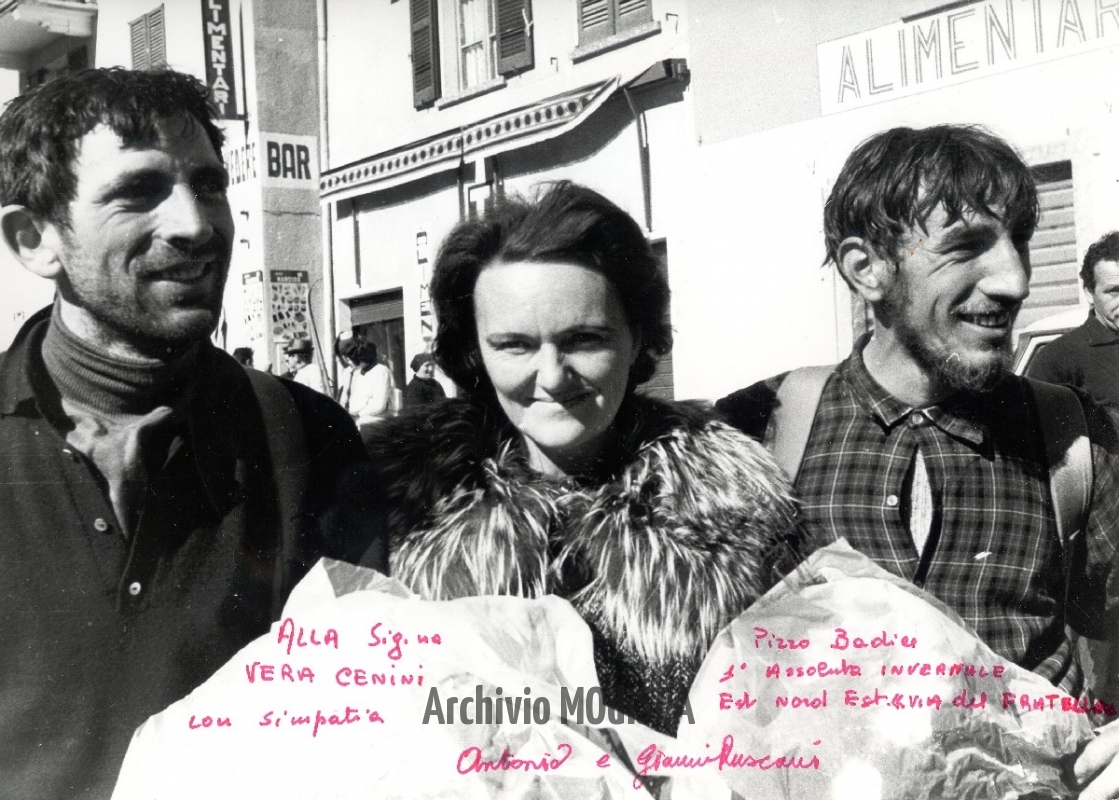 ALIMENTARI
BAR
ALIMENTAR
ALLA Sig.na
VERA CENINI
con simpatia
Pizzo Badile
1° Assoluta INVERNALE
Est Nord Est. e VIA del FRATELLO
Archivio
Antonio e Gianni Rusconi